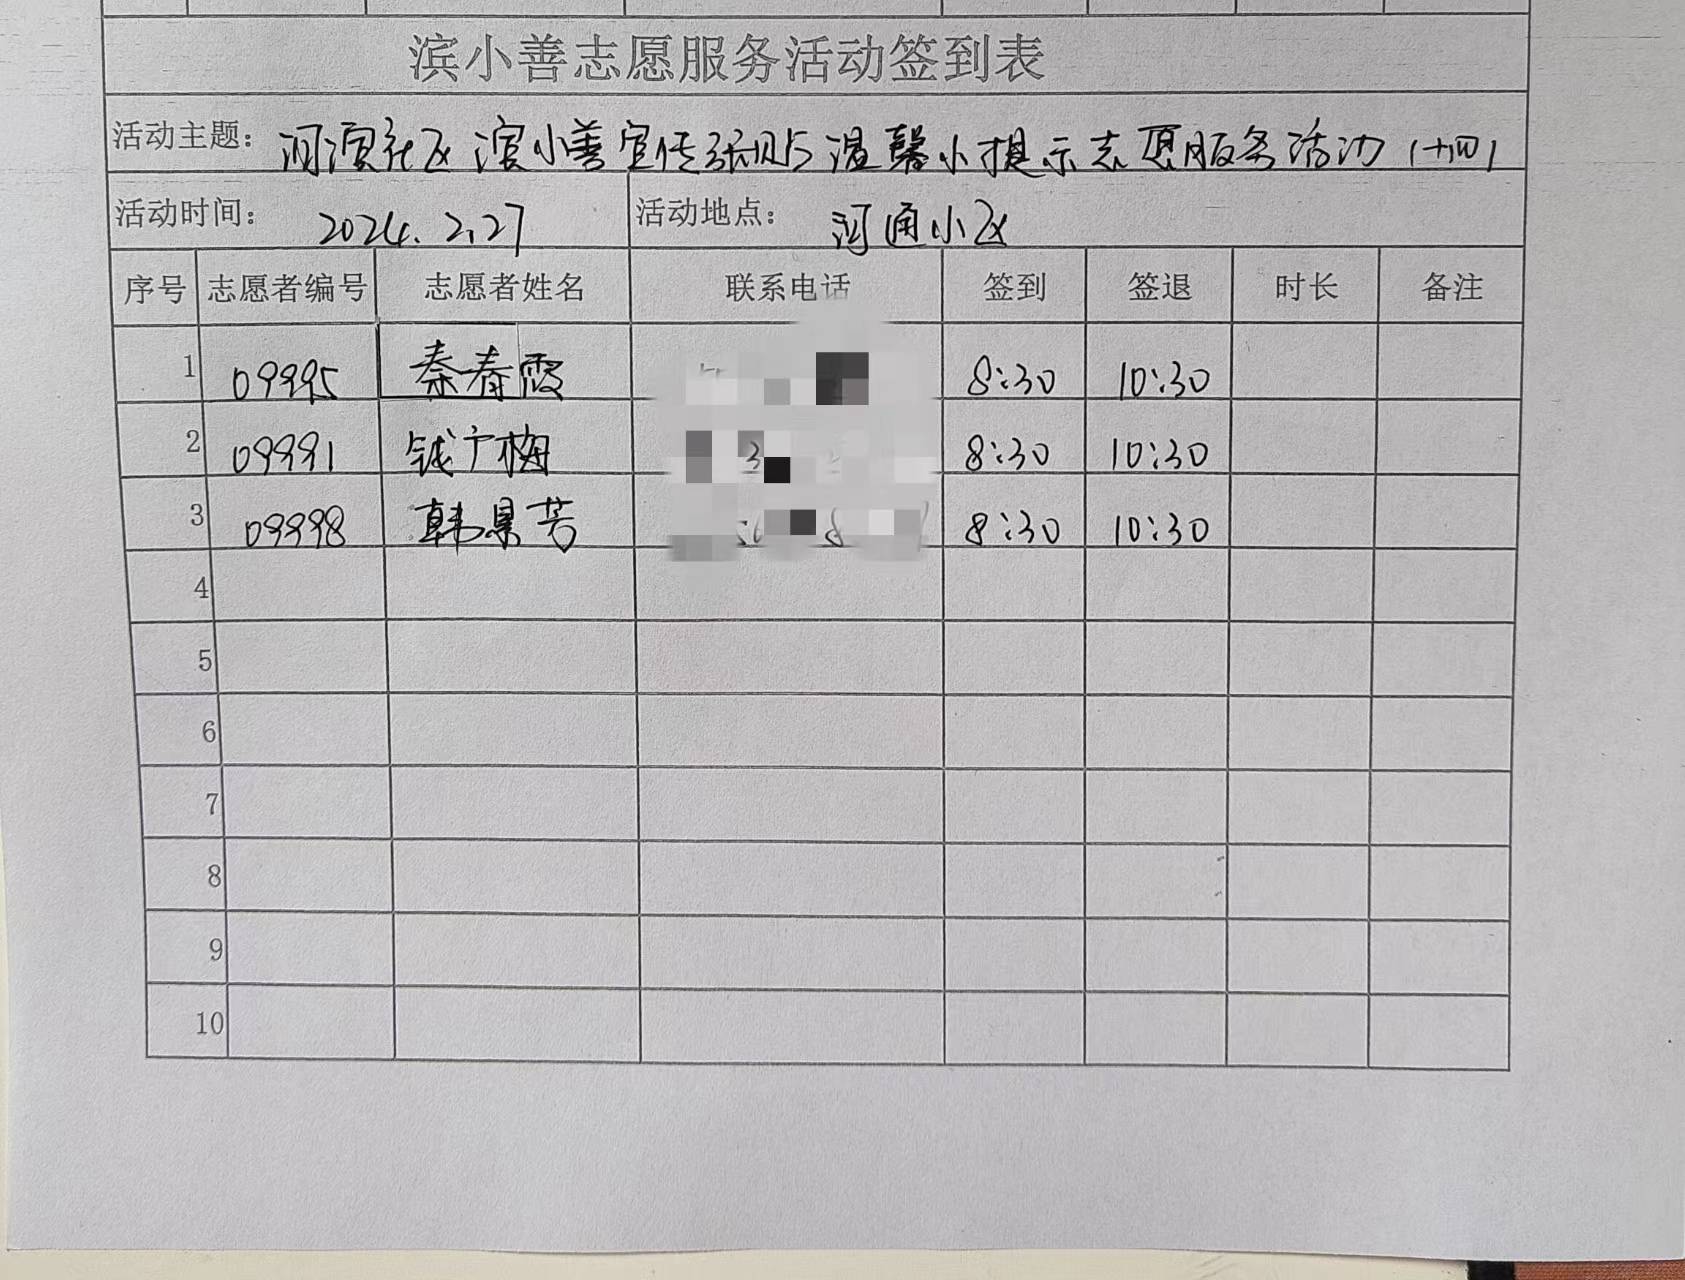 滨小善志愿服务活动签到表
活动主题: 河滨社区滨小善宣传张贴温馨小提示志愿服务活动(十四)
活动时间: 2024.2.27 活动地点: 河通小区
序号 志愿者编号 志愿者姓名 联系电话 签到 签退 时长 备注
1 09995 秦春霞 8:30 10:30
2 09991 钱广梅 8:30 10:30
3 09998 韩果芳 8:30 10:30
4
5
6
7
8
9
10